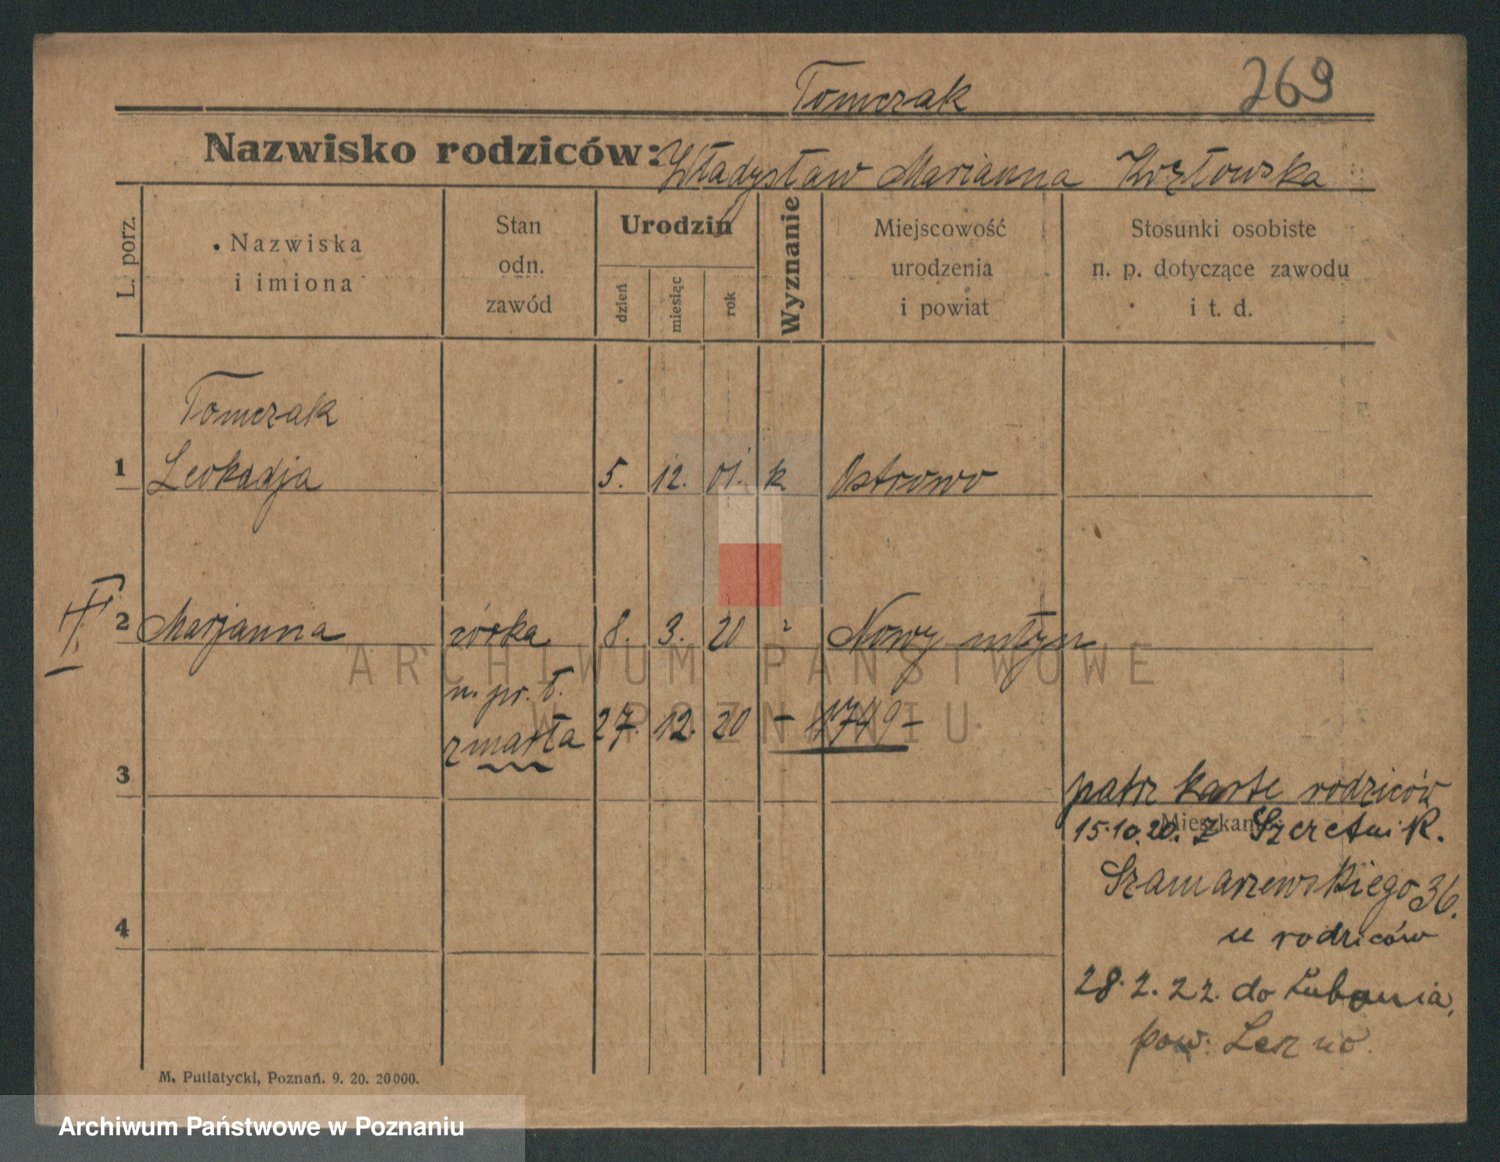 Tomczak 269
Nazwisko rodziców: Władysław Marianna Kozłowska
L. porz.
Nazwiska
i imiona
Stan
odn.
zawód
Urodzin
dzień
miesiąc
rok
Wyznanie
Miejscowość
urodzenia
i powiat
Stosunki osobiste
n. p. dotyczące zawodu
i t. d.
Tomczak
1 Leokadja 5. 12. 01. k Ostrowo
2 Marjanna córka 8. 3. 20 Nowy młyn
n. pr. ł.
zmarła 27. 12. 20 – 1749 –
3
patrz kartę rodziców
Mieszkanie
15.10.20. z
Szamarzewskiego 36.
u rodziców
4
28.2.22. do Łubonia,
pow.
M. Putiatycki, Poznań. 9. 20. 20000.
ARCHIWUM PAŃSTWOWE
W POZNANIU
Archiwum Państwowe w Poznaniu